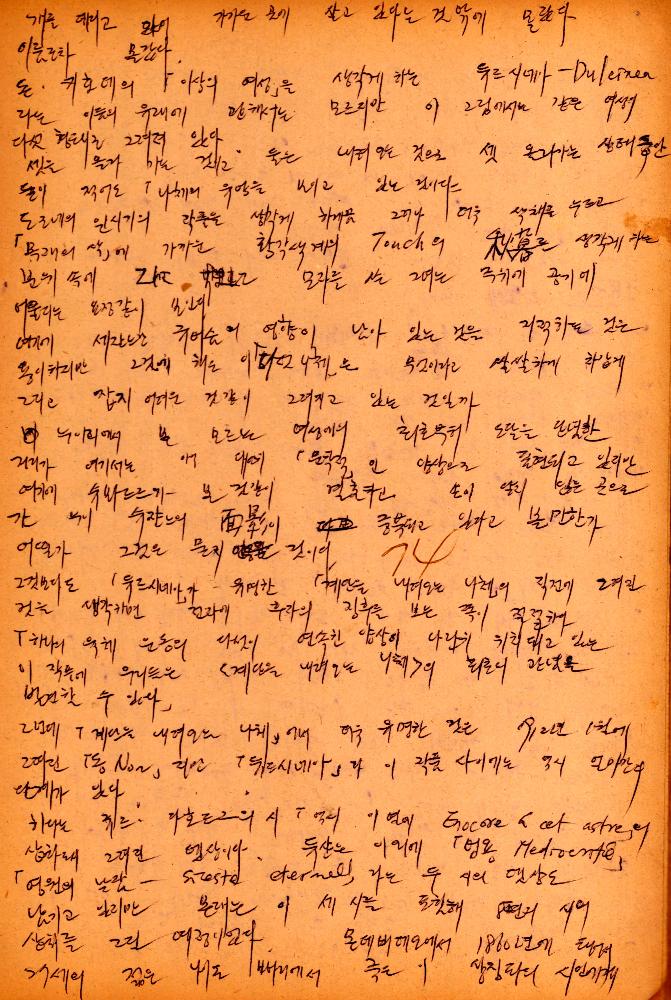 개를 데리고 가까운 곳에 살고 있다는 것 밖에 모른다
이름조차 몰랐다
돈·키호테의 「이상의 여성」을 생각게 하는 뒤르시네아 - Dulcinea
라는 이름의 유래에 관해서는 모르지만 이 그림에서는 같은 여성이
다섯 형태로 그려져 있다
셋은 올라 가는 것이고 둘은 내려오는 것으로 셋 올라가는
둘이 적어도 「나체의 」을 보이고 있는 것이다
생각게 하게끔 그러나 더욱 색채를 누르고
「목레의 상」에 가까운 황갈색계의 Touch의 생각게 하는
분위기 속에 모자를 쓴 그녀는 주위에 공기에
어울리는 표정같이 보인다
여기에 세잔느의 영향이 남아 있는 것을 지적하는 것은
용이하지만 그것에 해도 이 나체」는 무엇이라고 쌀쌀하게 차갑게
그리고 잡지 어려운 것같이 그려지고 있는 것일까
누이리에서 본 모르는 여성에의 최초부터 도달을 단념한
거리가 여기서는 대해 「문학적」인 양상으로 표현되고 있지만
여기에 본 것같이 결혼하고 손이 닿지 않는 곳으로
간 누이 수잔느의 面影이 중복되고 있다고 볼만한가
어떨가 그것은 문제 것이다
74
그것보다도 「뒤르시네아」가 유명한 「계단을 내려오는 나체」의 직전에 그려진
것을 생각하면 전자에 후자의 징후를 보는 쪽이 적절하다
「하나의 육체 운동의 다섯의 연속된 양상이 나란히 위치되고 있는
이 작품에 우리들은 <계단을 내려오는 나체>의 최초의 관념을
발견할 수 있다」
그런데 「계단을 내려오는 나체」에서 더욱 유명한 것은 1912년 1월에
그려진 「동 No2」 지만 「뒤르시네아」와 이 작품 사이에는 역시 얼마만의
단계가 있다
하나는 쥬르·라호르그의 시 「역시 이 별에 Encore à cet astre」의
삽화로서 그려진 뎃상이다. 뒤샹은 이외에 「범용 Médiocrité」
「영원의 낮잠 - Sieste eternelle」 라는 두 시의 뎃상도
남기고 있지만 본래는 이 세 시를 포함해 시의
삽화를 그릴 예정이었다 몬테비데오에서 1860년에 태생
27세의 젊은 나이로 빠리에서 죽은 이 상징파의 시인에게